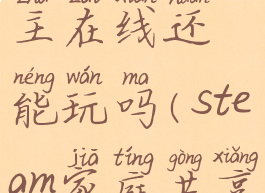 主在线还
néng wán ma
能玩吗(ste
jiā tíng gòng xiǎng
am家庭共享